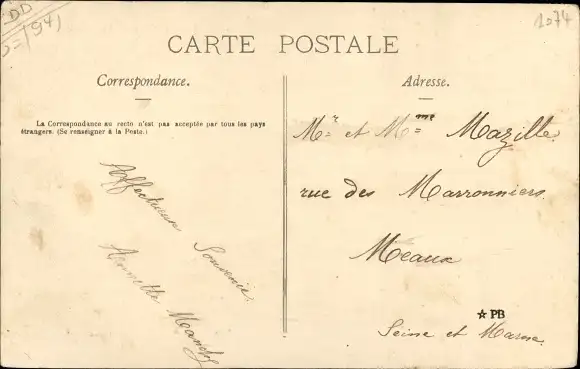 DD
1074
CARTE POSTALE
Correspondance.
La Correspondance au recto n'est pas acceptée par tous les pays
étrangers. (Se renseigner à la Poste.)
Affectueux Souvenir
Adresse.
Mr et Mme Mazille
rue des Marronniers
Meaux
☆ PB
Seine et Marne